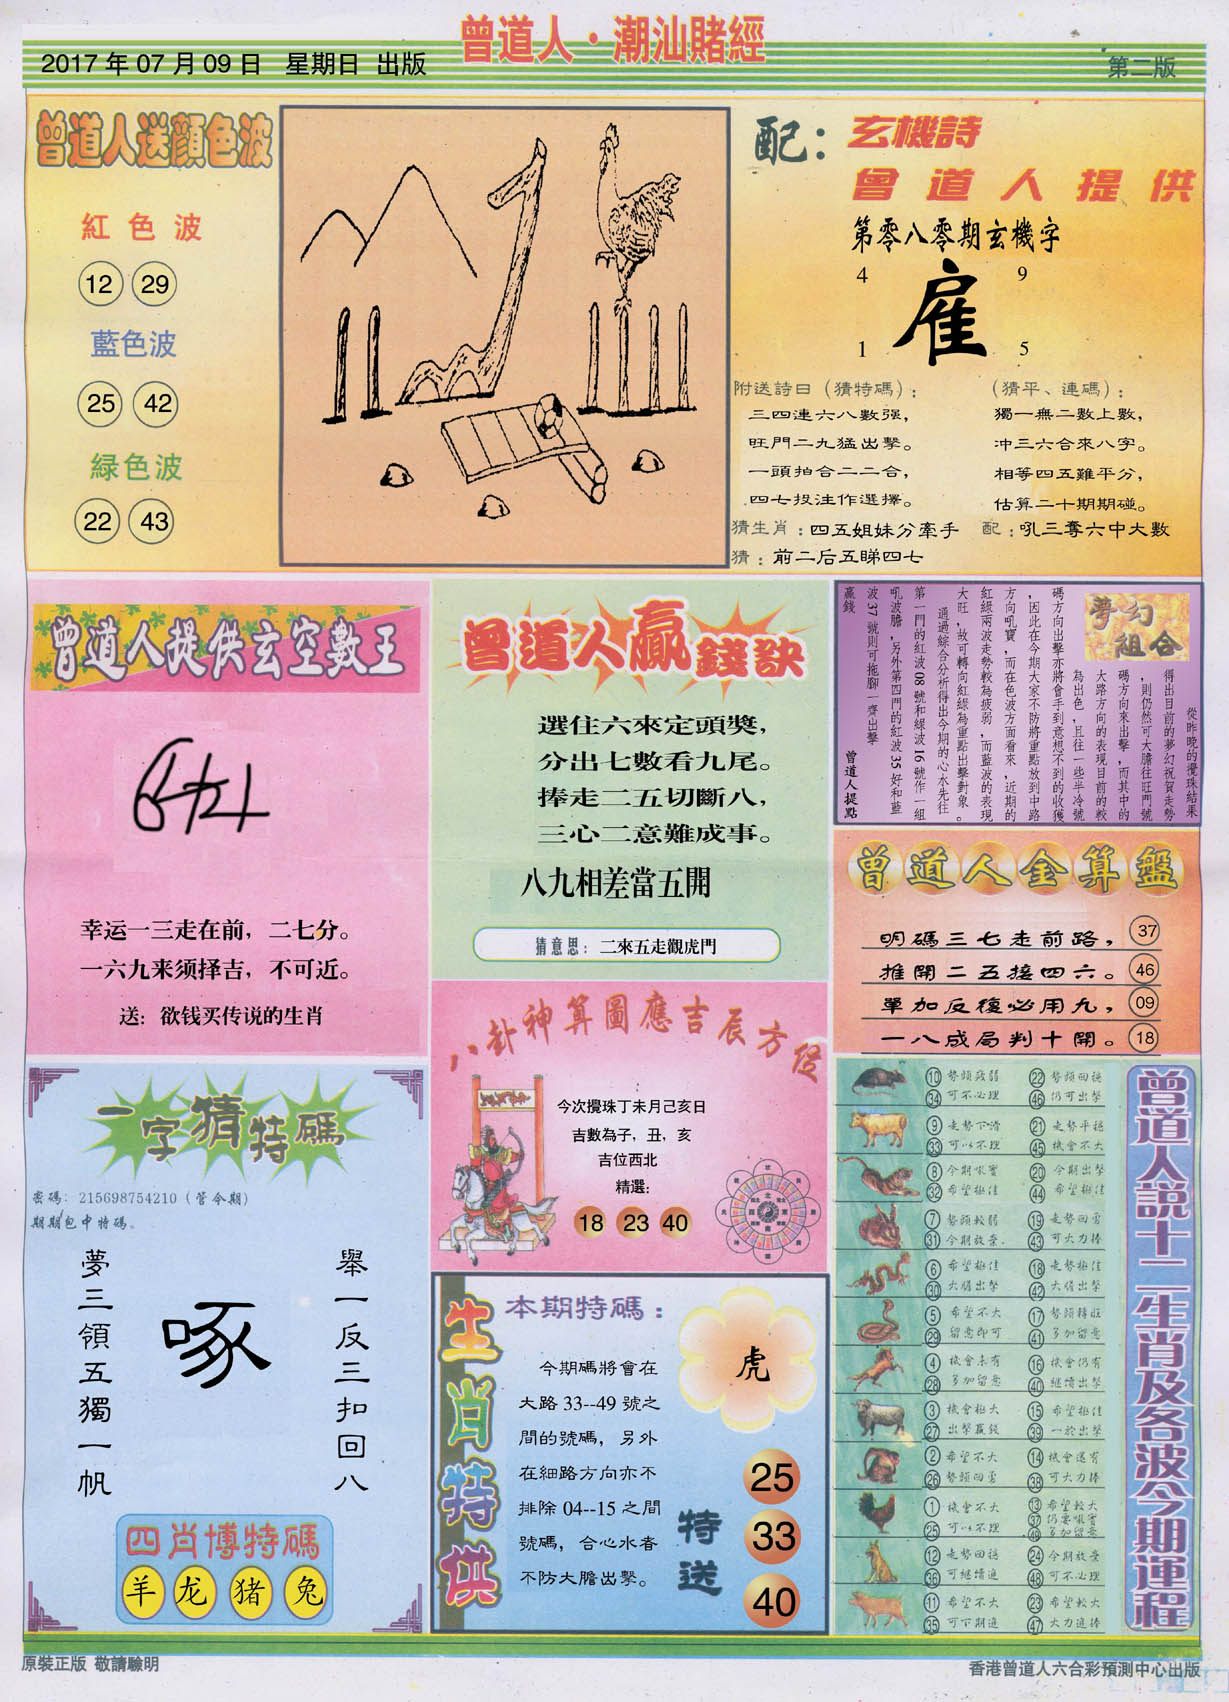 曾道人·潮汕賭經
2017 年 07 月 09 日 星期日 出版
第二版
曾道人送顏色波
紅色波
12 29
藍色波
25 42
緑色波
22 43
配：玄機詩
曾道人提供
第零八零期玄機字
4 9
雇
1 5
附送詩日（猜特碼）：
三四連六八數强，
旺門二九猛出擊。
一頭拍合二二合，
四七投注作選擇。
（猜平、連碼）：
獨一無二數上數，
冲三六合來八字。
相等四五難平分，
估算二十期期碰。
猜生肖：四五姐妹分牽手
配：吼三奪六中大數
猜：前二后五睇四七
曾道人提供玄空數王
幸运一三走在前，二七分。
一六九来须择吉，不可近。
送：欲钱买传说的生肖
曾道人贏錢訣
選住六來定頭獎，
分出七數看九尾。
捧走二五切斷八，
三心二意難成事。
八九相差當五開
猜意思：二來五走觀虎門
夢幻組合
從昨晚的攪珠結果
得出目前的夢幻祝賀走勢
，則仍然可大膽往旺門號
碼方向來出擊，而其中的
大路方向的表現目前的較
為出色，且往一些半冷號
碼方向出擊亦將會手到意想不到的收獲
，因此在今期大家不防將重點放到中路
方向吼寶，而在色波方面看來，近期的
紅綠兩波走勢較為疲弱，而藍波的表現
大旺，故可轉向紅綠為重點出擊對象。
通過綜合分析得出今期的心水先往
第一門的紅波 08 號和緑波 16 號作一組
吼波膽，另外第四門的紅波 35 好和藍
波 37 號則可拖腳一齊出擊
贏錢
曾道人提點
曾道人金算盤
明碼三七走前路， 37
推開二五接四六。 46
單加反後必用九， 09
一八成局判十開。 18
八卦神算圖應吉辰方位
今次攪珠丁未月己亥日
吉數為子，丑，亥
吉位西北
精選：
18 23 40
一字猜特碼
密碼：215698754210（管今期）
期期包中特碼。
舉一反三扣回八
啄
夢三領五獨一帆
四肖博特碼
羊 龙 猪 兔
生肖特供
本期特碼：
虎
今期碼將會在
大路 33--49 號之
間的號碼，另外
在細路方向亦不
排除 04--15 之間
號碼，合心水者
不防大膽出擊。
特送
25
33
40
曾道人説十二生肖及各波今期運程
10 勢頭疲弱 22 勢頭回穩
34 可不必理 46 仍可出擊
9 走勢下滑 21 走勢平穩
33 可以不理 45 機會不大
8 今期吼寶 20 今期出擊
32 希望極佳 44 希望極佳
7 勢頭較弱 19 走勢回勇
31 今期放棄 43 可大力捧
6 希望極佳 18 走勢極佳
30 大膽出擊 42 大膽出擊
5 希望不大 17 勢頭轉旺
29 留意即可 41 多加留意
4 機會未有 16 機會仍有
28 多加留意 40 繼續出擊
3 機會極大 15 希望極佳
27 出擊贏錢 39 一於出擊
2 希望不大 14 機會還有
26 勢頭回勇 38 可大力捧
1 機會不大 13 希望較大
25 可以不理 37 仍要吼實
49 多加留意
12 走勢回穩 24 今期放棄
36 可繼續追 48 可不必理
11 希望不大 23 希望較大
35 可下期追 47 大力追捧
原裝正版 敬請驗明
香港曾道人六合彩預測中心出版